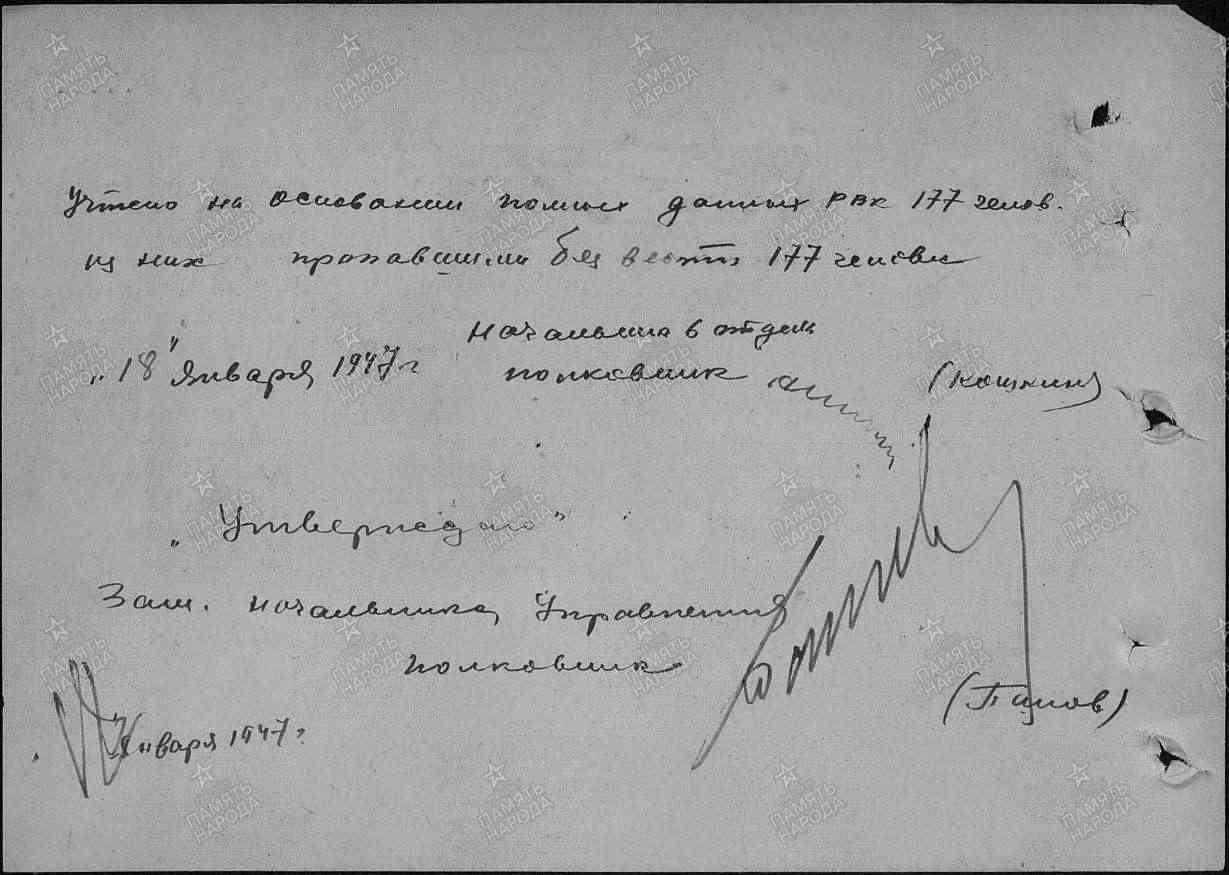 Учтено на основании полных данных РВК 177 челов.
из них пропавшими без вести 177 человек
Начальник 6 отдела
"18" января 1947 г полковник (Кошкин)
"Утверждаю"
Зам. начальника Управления
полковник
января 1947 г.
ПАМЯТЬ НАРОДА